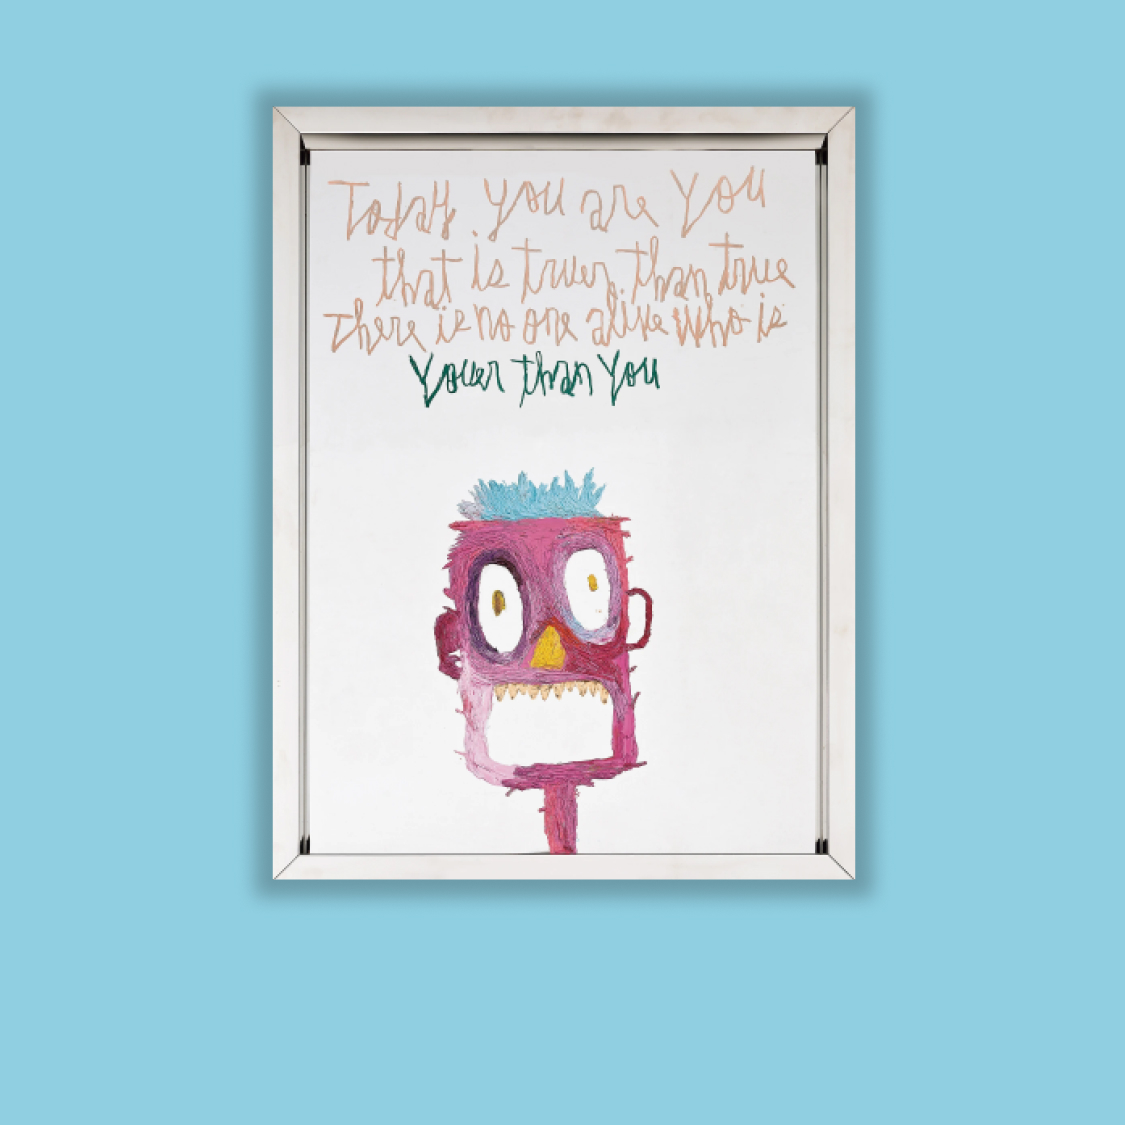 Today you are You
that is truer than true
There is no one alive who is
Youer than You